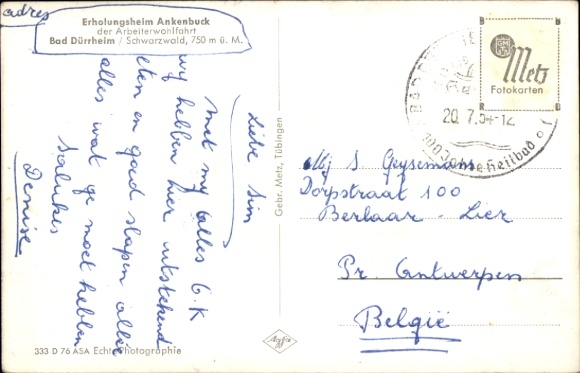 adres
Erholungsheim Ankenbuck
der Arbeiterwohlfahrt
Bad Dürrheim / Schwarzwald, 750 m ü. M.
Liebe Sim
met my alles O.K
wy hebben hier uitstekend
eten en goed slapen allee
alles wat ge moet hebben
Salukes
Denise
333 D 76 ASA Echte Photographie
Gebr. Metz, Tübingen
Agfa
Metz
Fotokarten
20.7.54-12
Mej S. Geysemans
Dorpstraat 100
Berlaar - Lier
Pr. Antwerpen
België